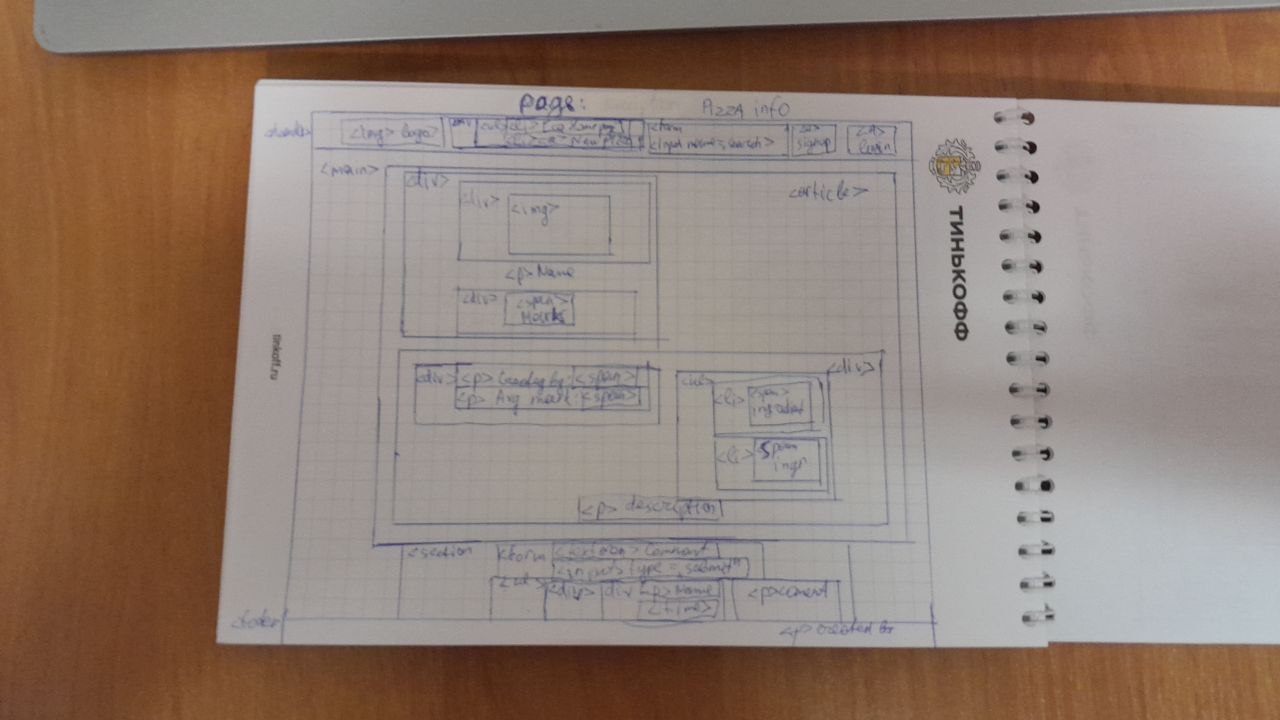 page: Pizza info
<header>
<img> logo>
<form
<input name=search>
<a>
signup
<a>
login
<main>
<div>
<article>
<div>
<img>
<p> Name
<div>
<span>
Marks
<div>
<div>
<p> Created by: <span>
<p> Avg mark: <span>
<ul>
<li>
<span>
ingredient
<li>
Span
ingr
<p> description
<section
<form
Comment
<input type="submit"
<ul>
<div>
div
<p>Name
<time>
<p>coment
<footer
<p> created by
ТИНЬКОФФ
tinkoff.ru